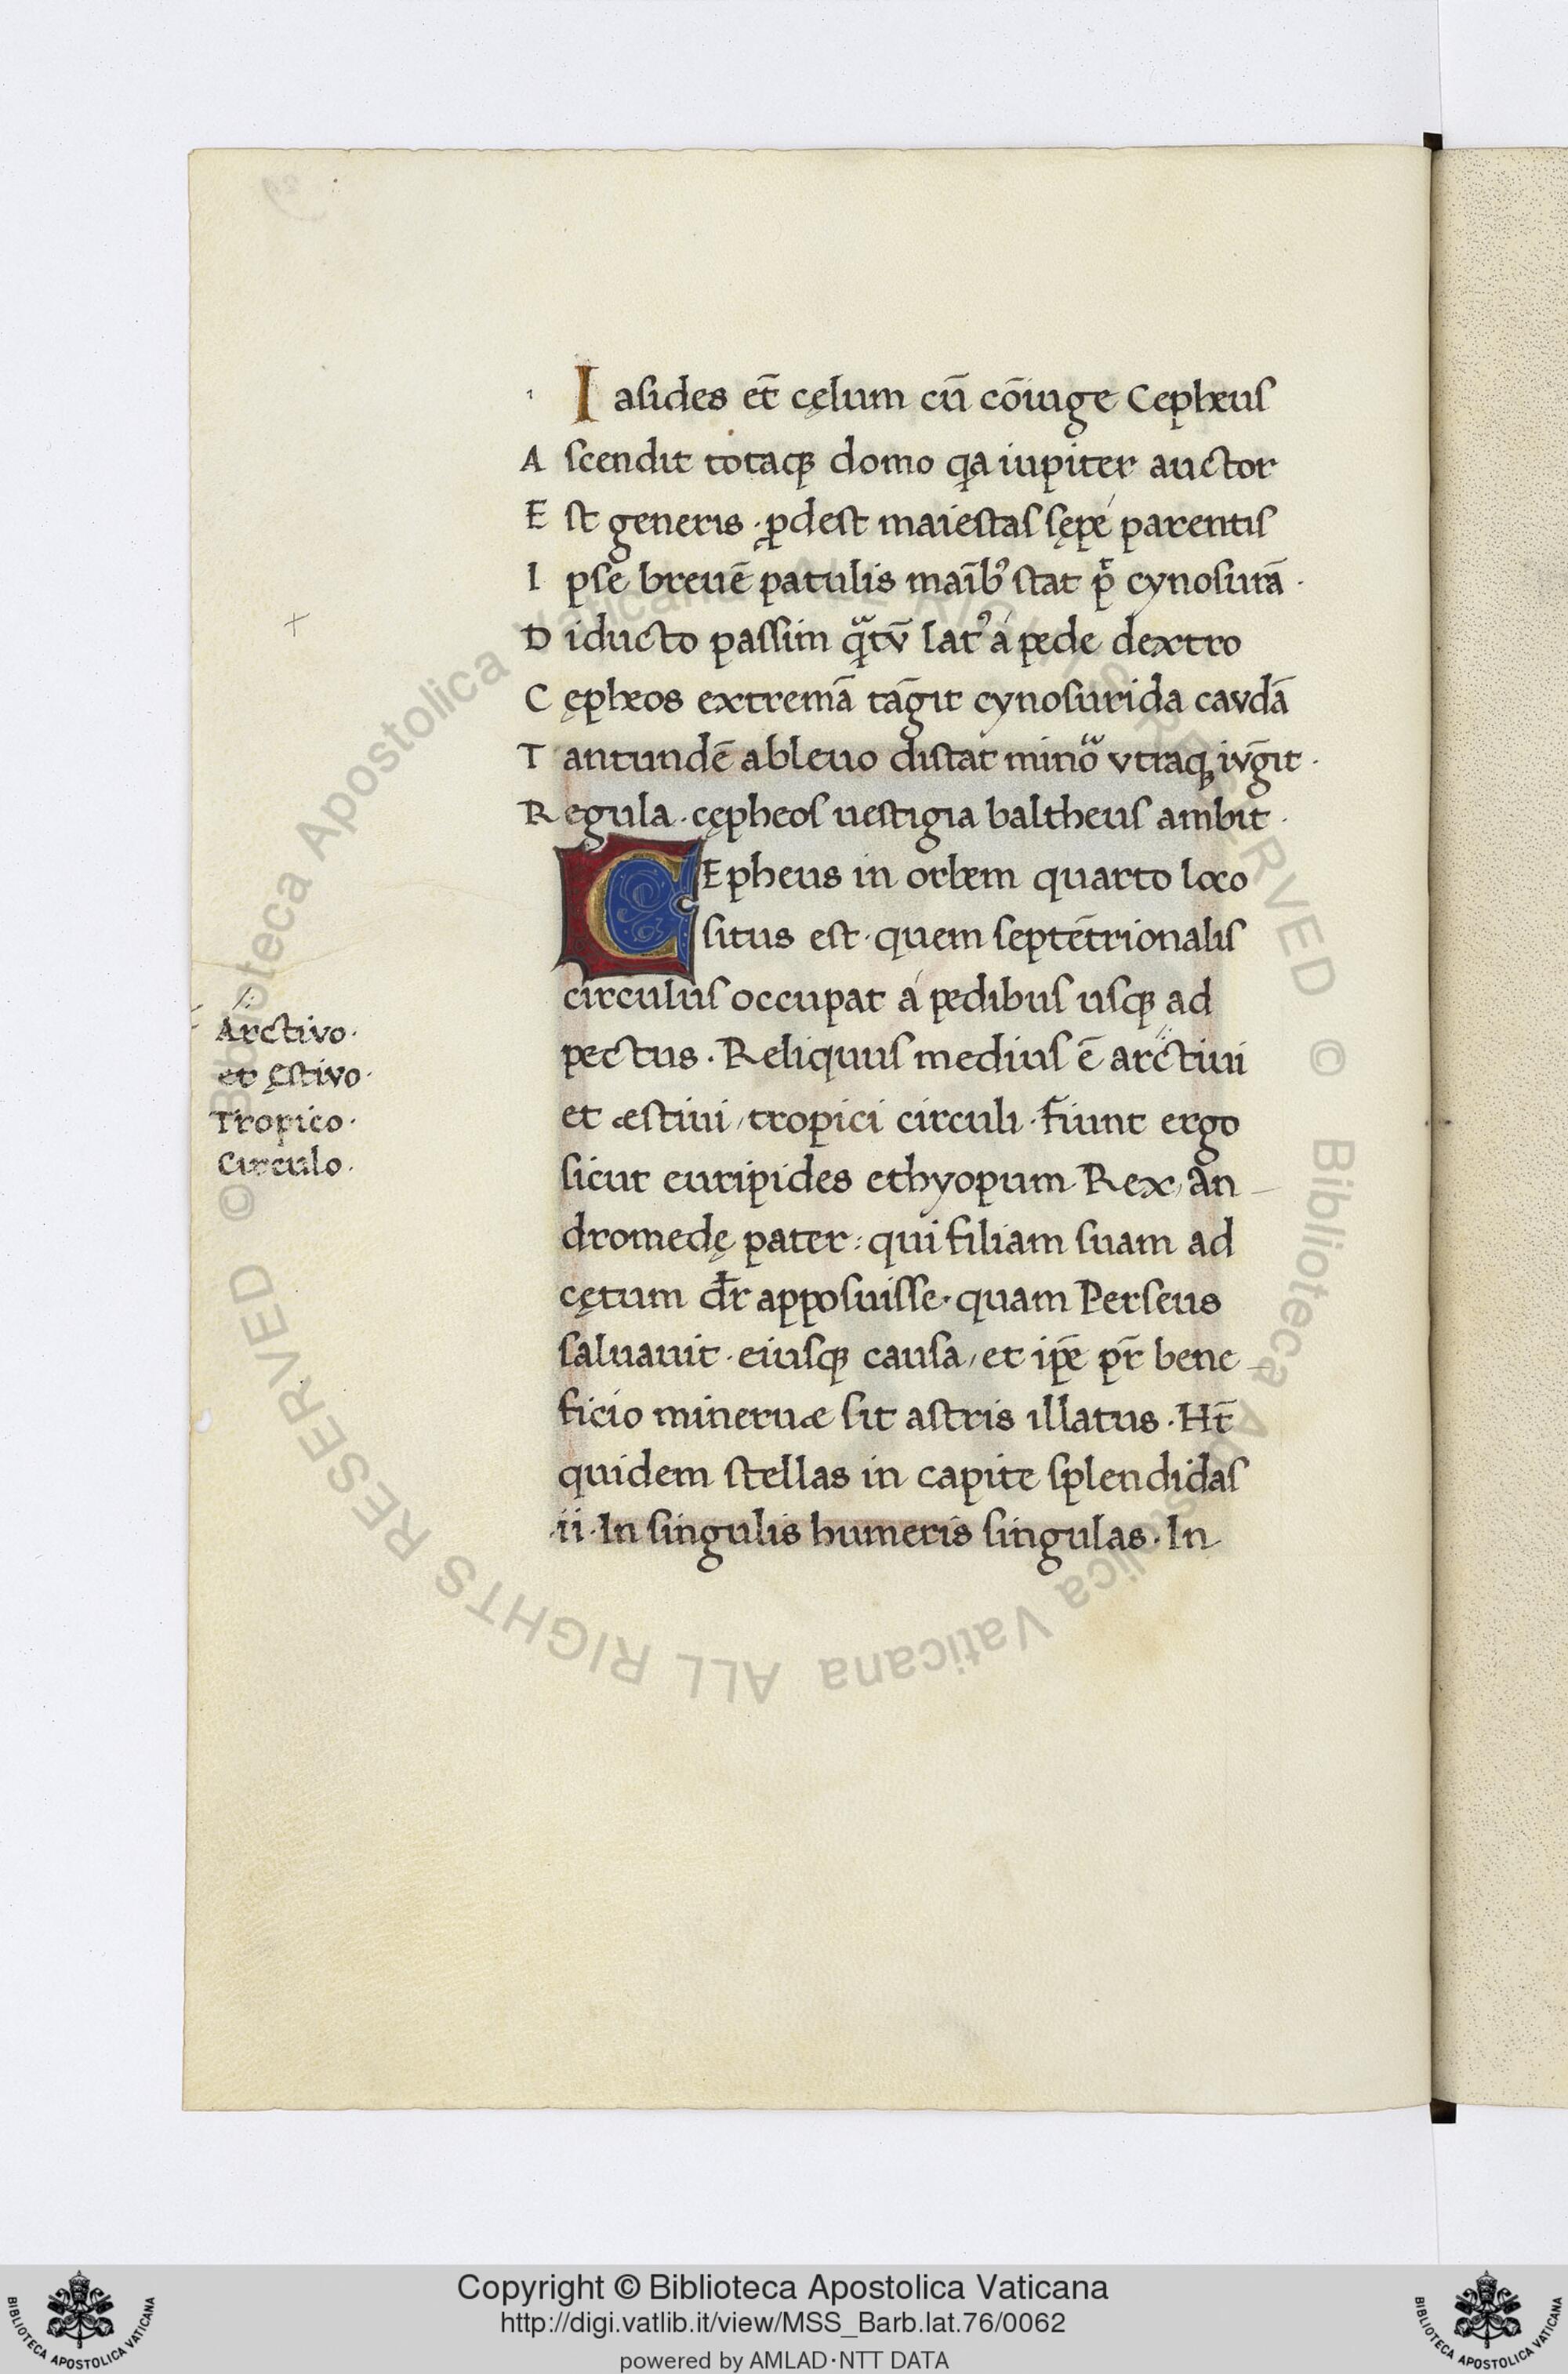 Iasides et̄ cęlum cū cōiuge Cepheus
Ascendit totaqꝫ domo qa iupiter auctor
Est generis · ꝓdest maiestas sępe parentis
Ipse breuē patulis maībꝰ stat p̄ cynosurā ·
Diducto passim qᷓtv̄ latꝰ a pede dextro
Cępheos extremā tāgit cynosurida cavdā
Tantundē ab leuo distat minoᷓ vtraqꝫ iv̄git ·
Regula · cępheos uestigia baltheus ambit ·
CEpheus in orbem quarto loco
situs est · quem septētrionalis
circulus occupat a pedibus usqꝫ ad
pectus · Reliquus medius ē arctiui
et æstiui / tropici circuli · fiunt ergo
sicut euripides ethyopum Rex / an
dromedę pater : qui filiam suam ad
cętum dr̄ apposuisse · quam Perseus
saluauit · eiusqꝫ causa / et ip̄e pr̄ bene
ficio mineruæ sit astris illatus · Ht̄
quidem stellas in capite splendidas
·ii· In singulis humeris singulas · In
Arctivo ·
et ęstivo ·
Tropico ·
Circulo ·
Copyright © Biblioteca Apostolica Vaticana
http://digi.vatlib.it/view/MSS_Barb.lat.76/0062
powered by AMLAD·NTT DATA
BIBLIOTECA APOSTOLICA VATICANA
BIBLIOTECA APOSTOLICA VATICANA
© Biblioteca Apostolica Vaticana ALL RIGHTS RESERVED
© Biblioteca Apostolica Vaticana ALL RIGHTS RESERVED